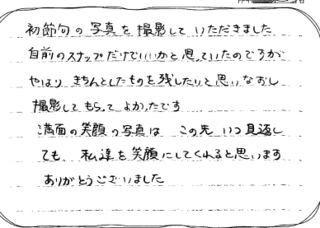 初節句の写真を撮影していただきました
自前のスナップだけでいいかと思っていたのですが
やはり きちんとしたものを残したいと思いなおし
撮影してもらってよかったです
満面の笑顔の写真は この先 いつ見返し
ても、私達を笑顔にしてくれると思います
ありがとうございました